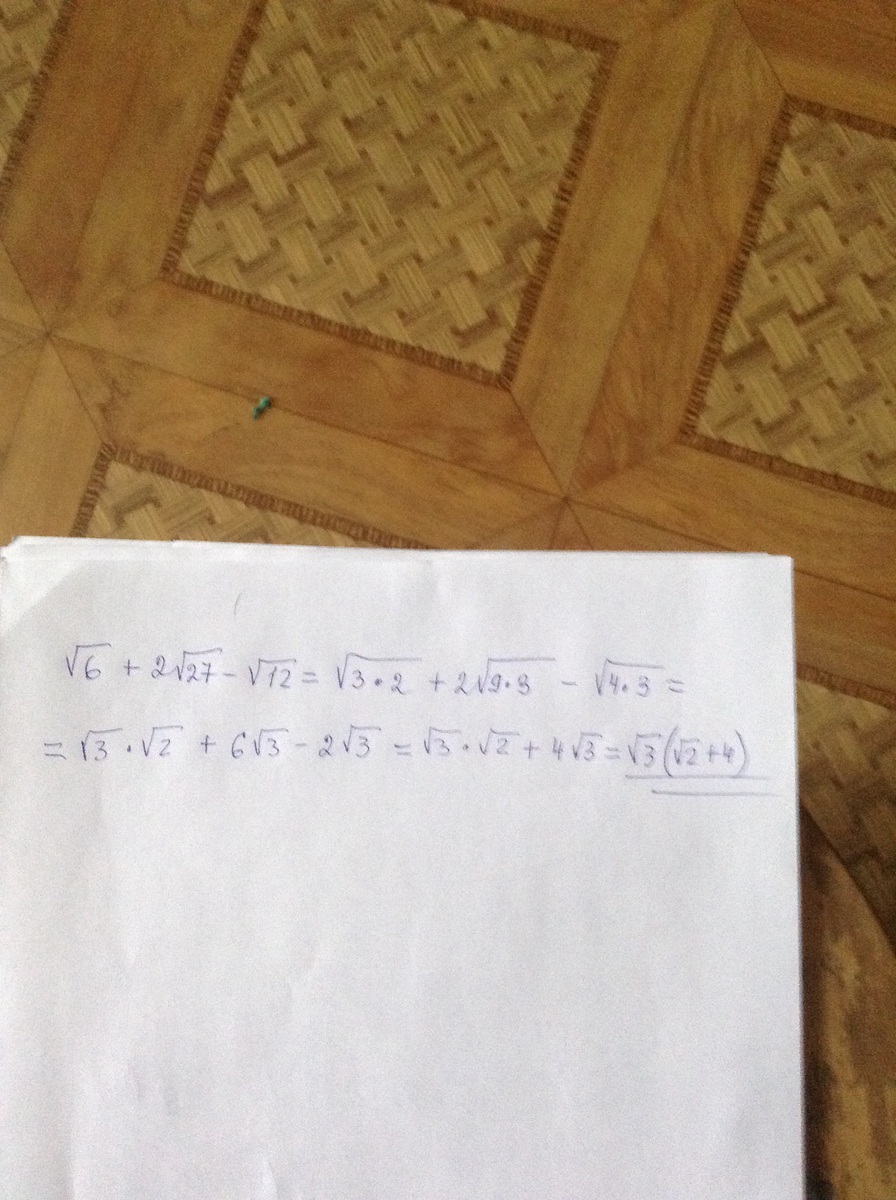 √6 + 2√27 - √12 = √3·2 + 2√9·3 - √4·3 =
= √3·√2 + 6√3 - 2√3 = √3·√2 + 4√3 = √3(√2+4)